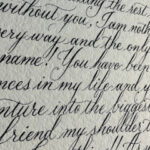 the rest
without you. I am noth
ery way and the only
name! You have been
nces in my life and y
nture into the biggest
friend my shoulder t